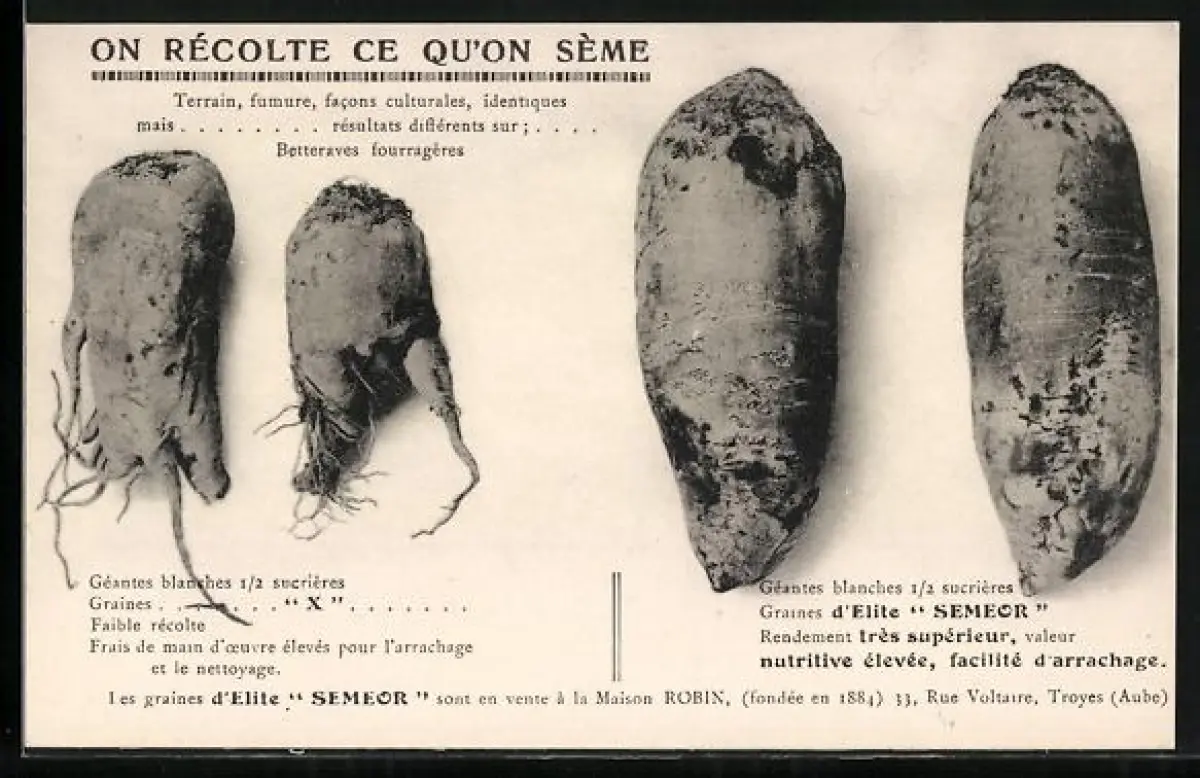 ON RÉCOLTE CE QU'ON SÈME
Terrain, fumure, façons culturales, identiques
mais . . . . . . . . résultats différents sur ; . . . .
Betteraves fourragères
Géantes blanches 1/2 sucrières
Graines . . . . . . . “ X ” . . . . . . .
Faible récolte
Frais de main d'œuvre élevés pour l'arrachage
et le nettoyage.
Géantes blanches 1/2 sucrières
Graines d'Elite “ SEMEOR ”
Rendement très supérieur, valeur
nutritive élevée, facilité d'arrachage.
Les graines d'Elite “ SEMEOR ” sont en vente à la Maison ROBIN, (fondée en 1884) 33, Rue Voltaire, Troyes (Aube)